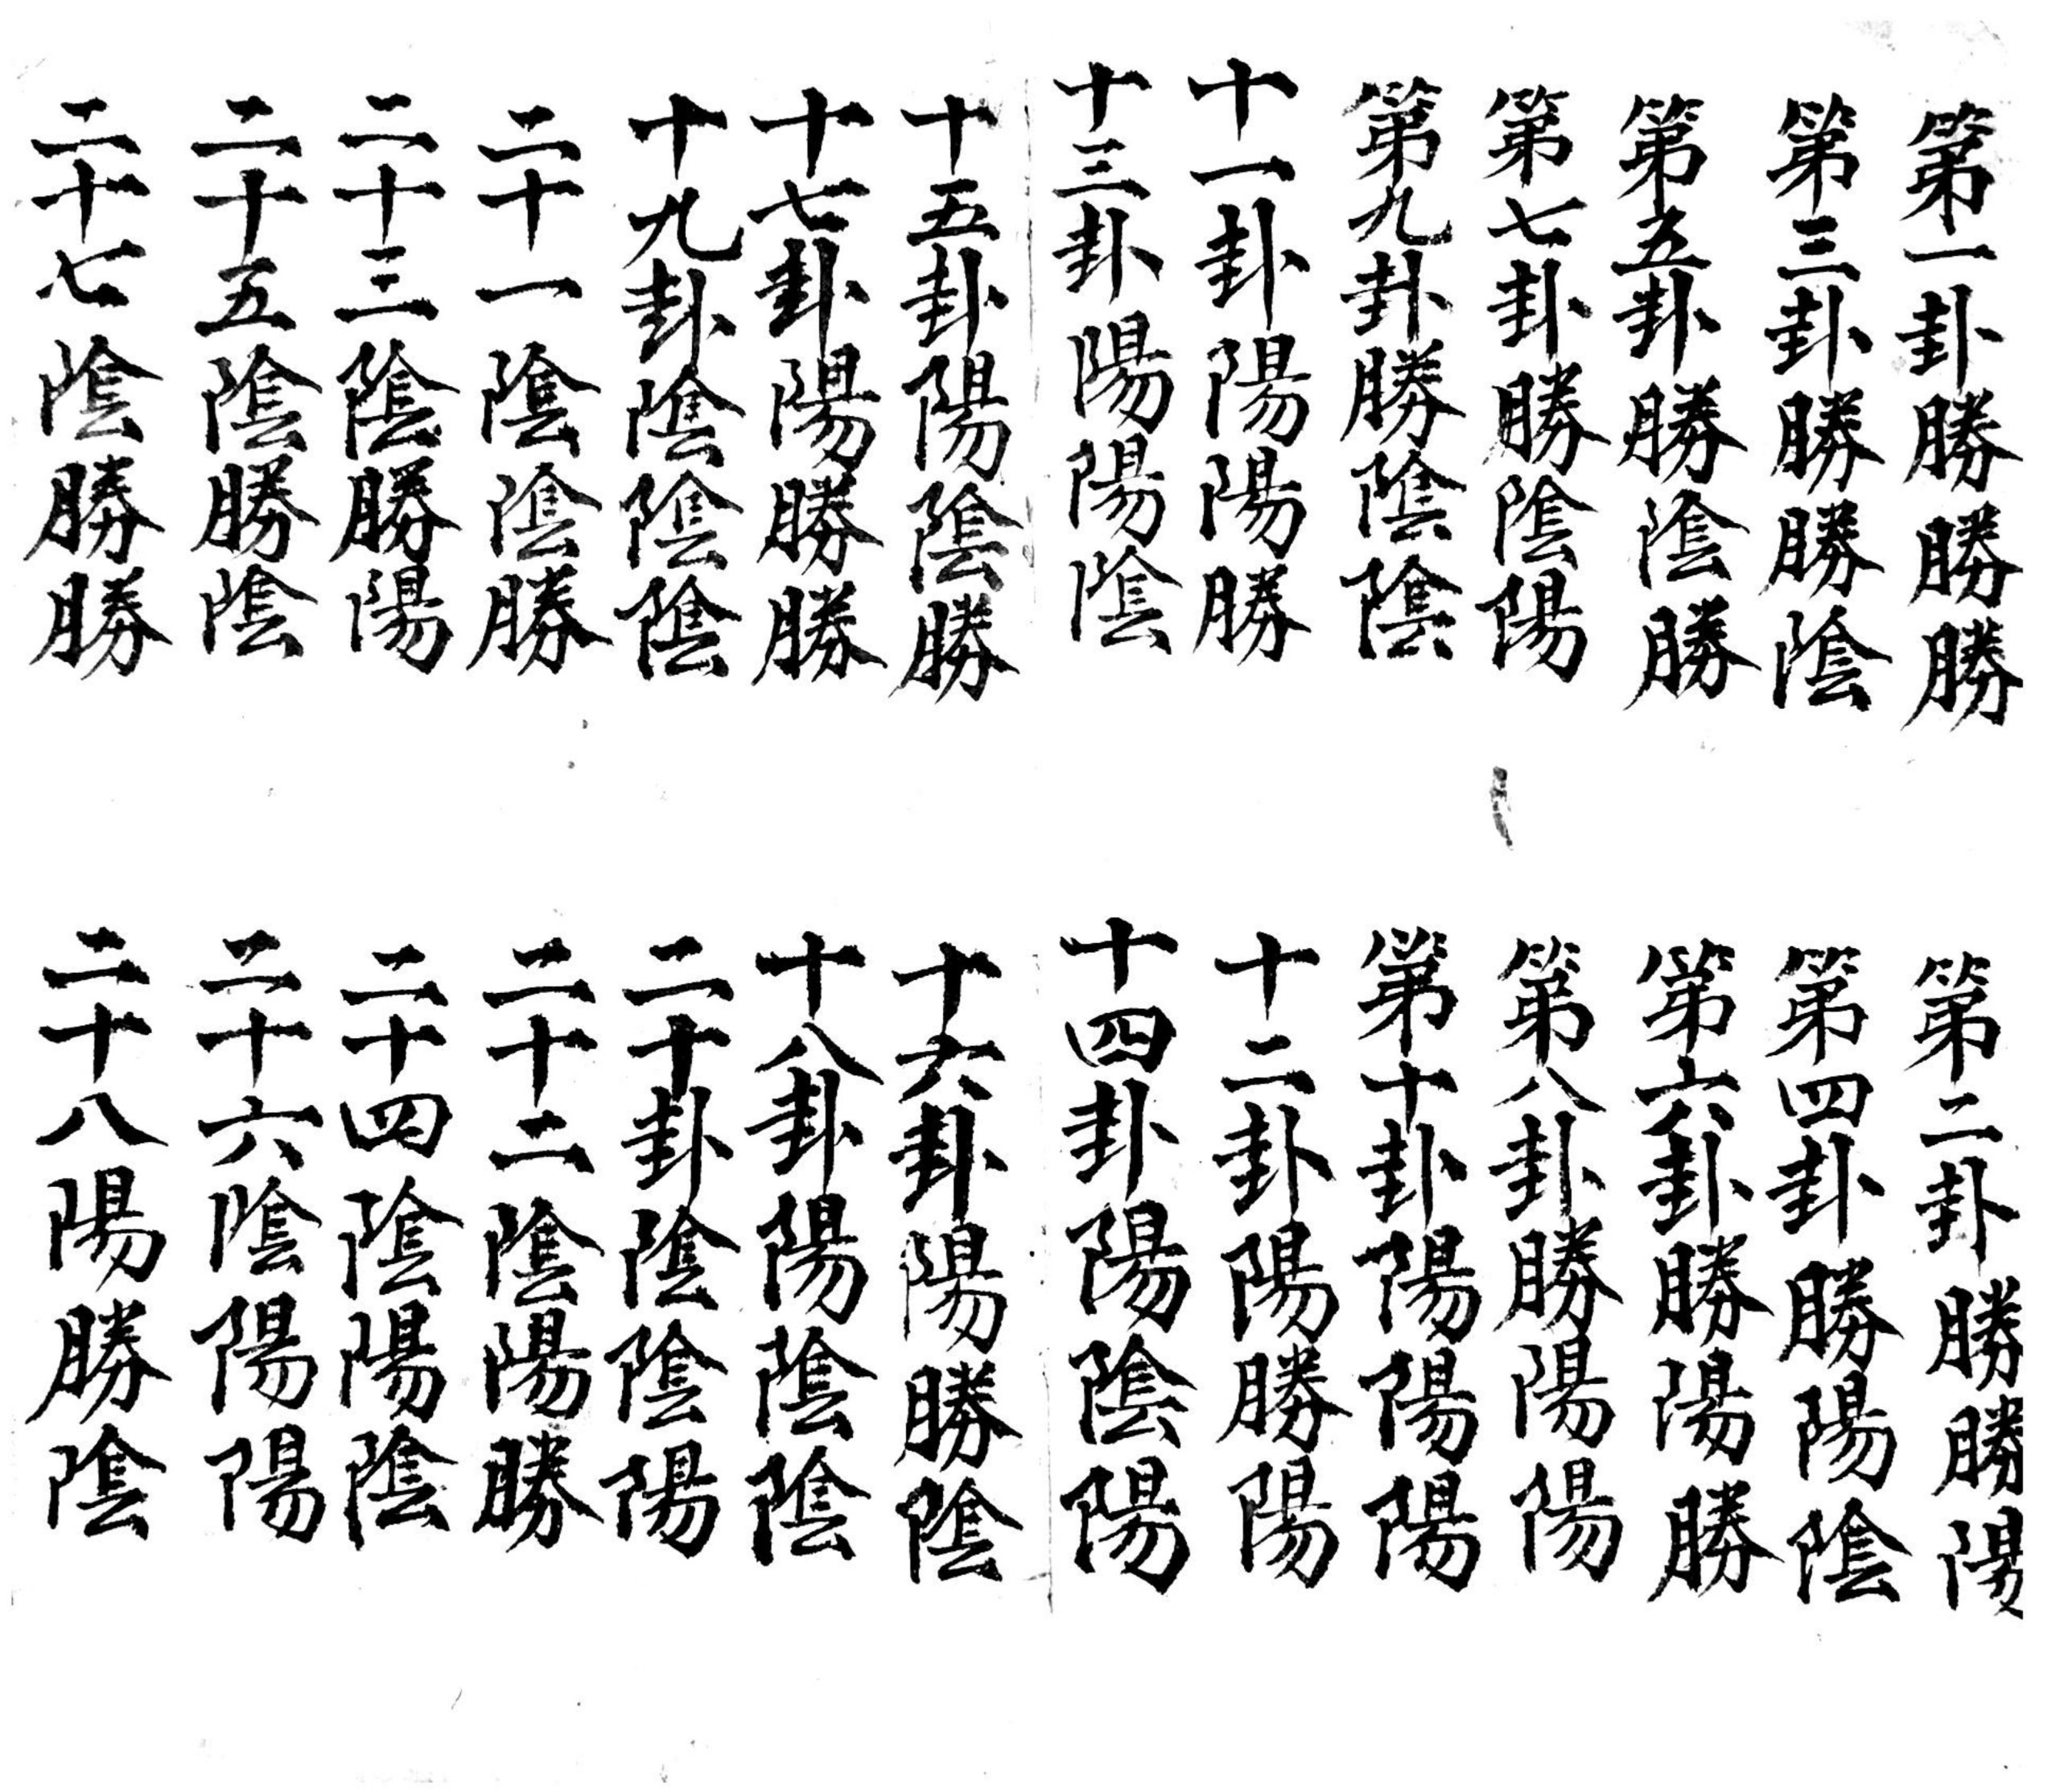 第一卦勝勝勝
第三卦勝勝陰
第五卦勝陰勝
第七卦勝陰陽
第九卦勝陰陰
十一卦陽陽勝
十三卦陽陽陰
十五卦陽陰勝
十七卦陽勝勝
十九卦陰陰陰
二十一陰陰勝
二十三陰勝陽
二十五陰勝陰
二十七陰勝勝
第二卦勝勝陽
第四卦勝陽陰
第六卦勝陽勝
第八卦勝陽陽
第十卦陽陽陽
十二卦陽勝陽
十四卦陽陰陽
十六卦陽勝陰
十八卦陽陰陰
二十卦陰陰陽
二十二陰陽勝
二十四陰陽陰
二十六陰陽陽
二十八陽勝陰